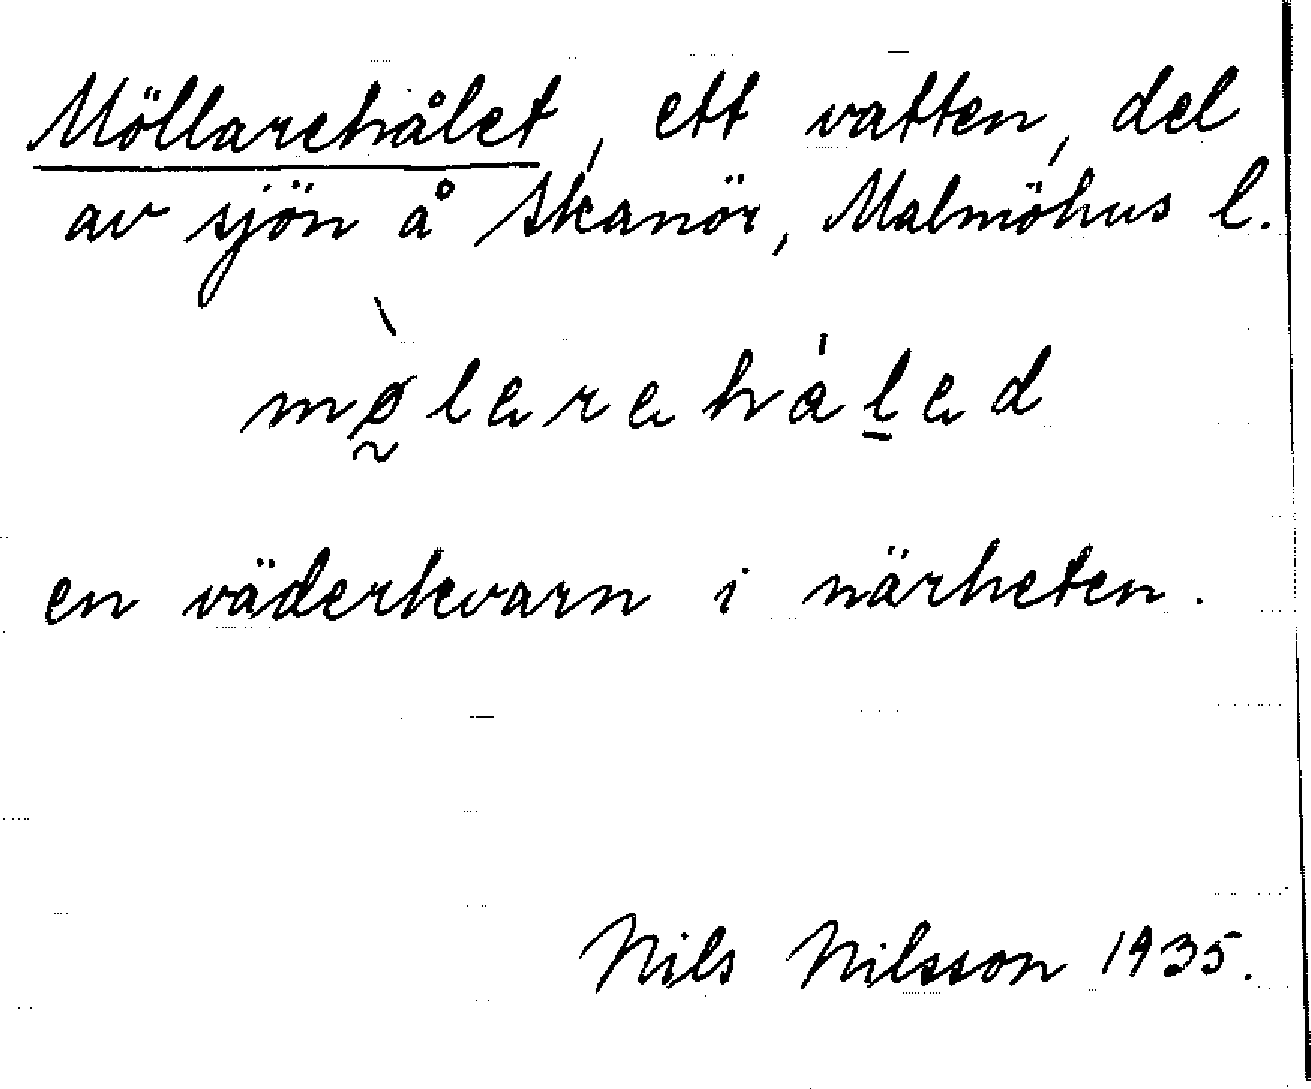 Möllarehålet, ett vatten, del
av sjön å Skanör, Malmöhus l.
mø̰̀lerehål̠ed
en väderkvarn i närheten.
Nils Nilsson 1935.